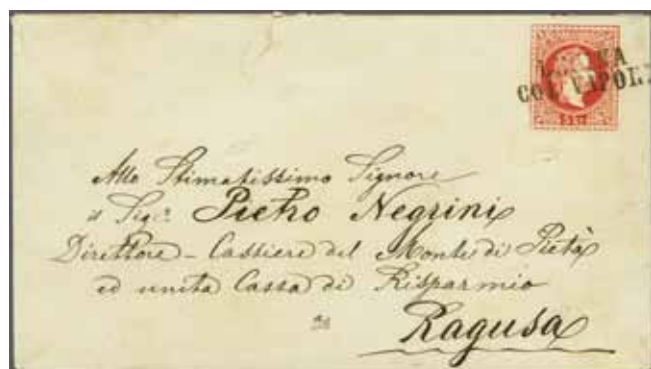 COL VAPORE
5 KR
Allo Stimatissimo Signore
il Sigr Pietro Negrini
Direttore – Cassiere del Monte di Pietà
ed unita Cassa di Risparmio
Ragusa